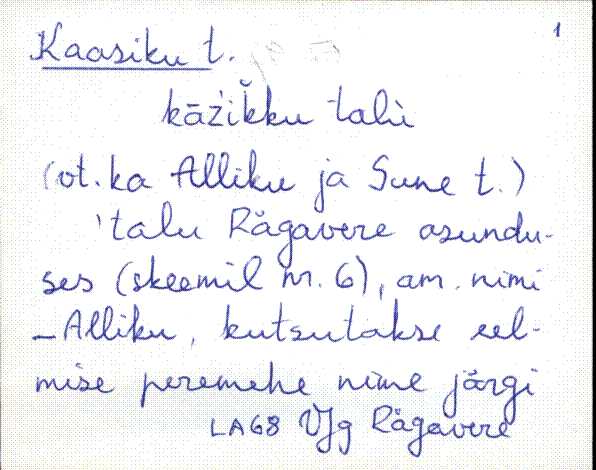 1
Kaasiku t.
kāžik̆ku talù
(vt. ka Alliku ja Sune t.)
'talu Rägavere asundu-
ses (skeemil nr. 6), am. nimi
– Alliku, kutsutakse eel-
mise peremehe nime järgi
LA68 VJg Rägavere